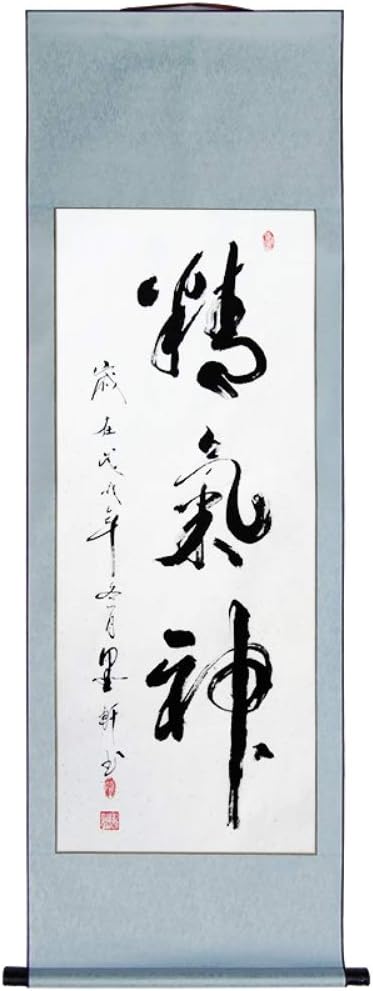 精氣神
歲在戊戌年冬月墨軒書